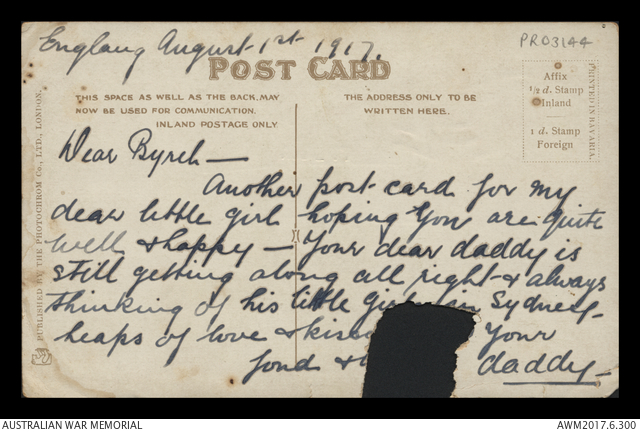 England August 1st 1917.
PR03144
POST CARD
THIS SPACE AS WELL AS THE BACK, MAY
NOW BE USED FOR COMMUNICATION.
INLAND POSTAGE ONLY
THE ADDRESS ONLY TO BE
WRITTEN HERE.
Affix
½ d. Stamp
Inland
1 d. Stamp
Foreign
PRINTED IN BAVARIA
PUBLISHED BY THE PHOTOCHROM CO., LTD., LONDON.
Dear —
Another post-card for my
dear little girl hoping you are quite
well & happy — Your dear daddy is
still getting along all right & always
thinking of his little girl in Sydney -
heaps of love & Your
fond & daddy —
AUSTRALIAN WAR MEMORIAL
AWM2017.6.300